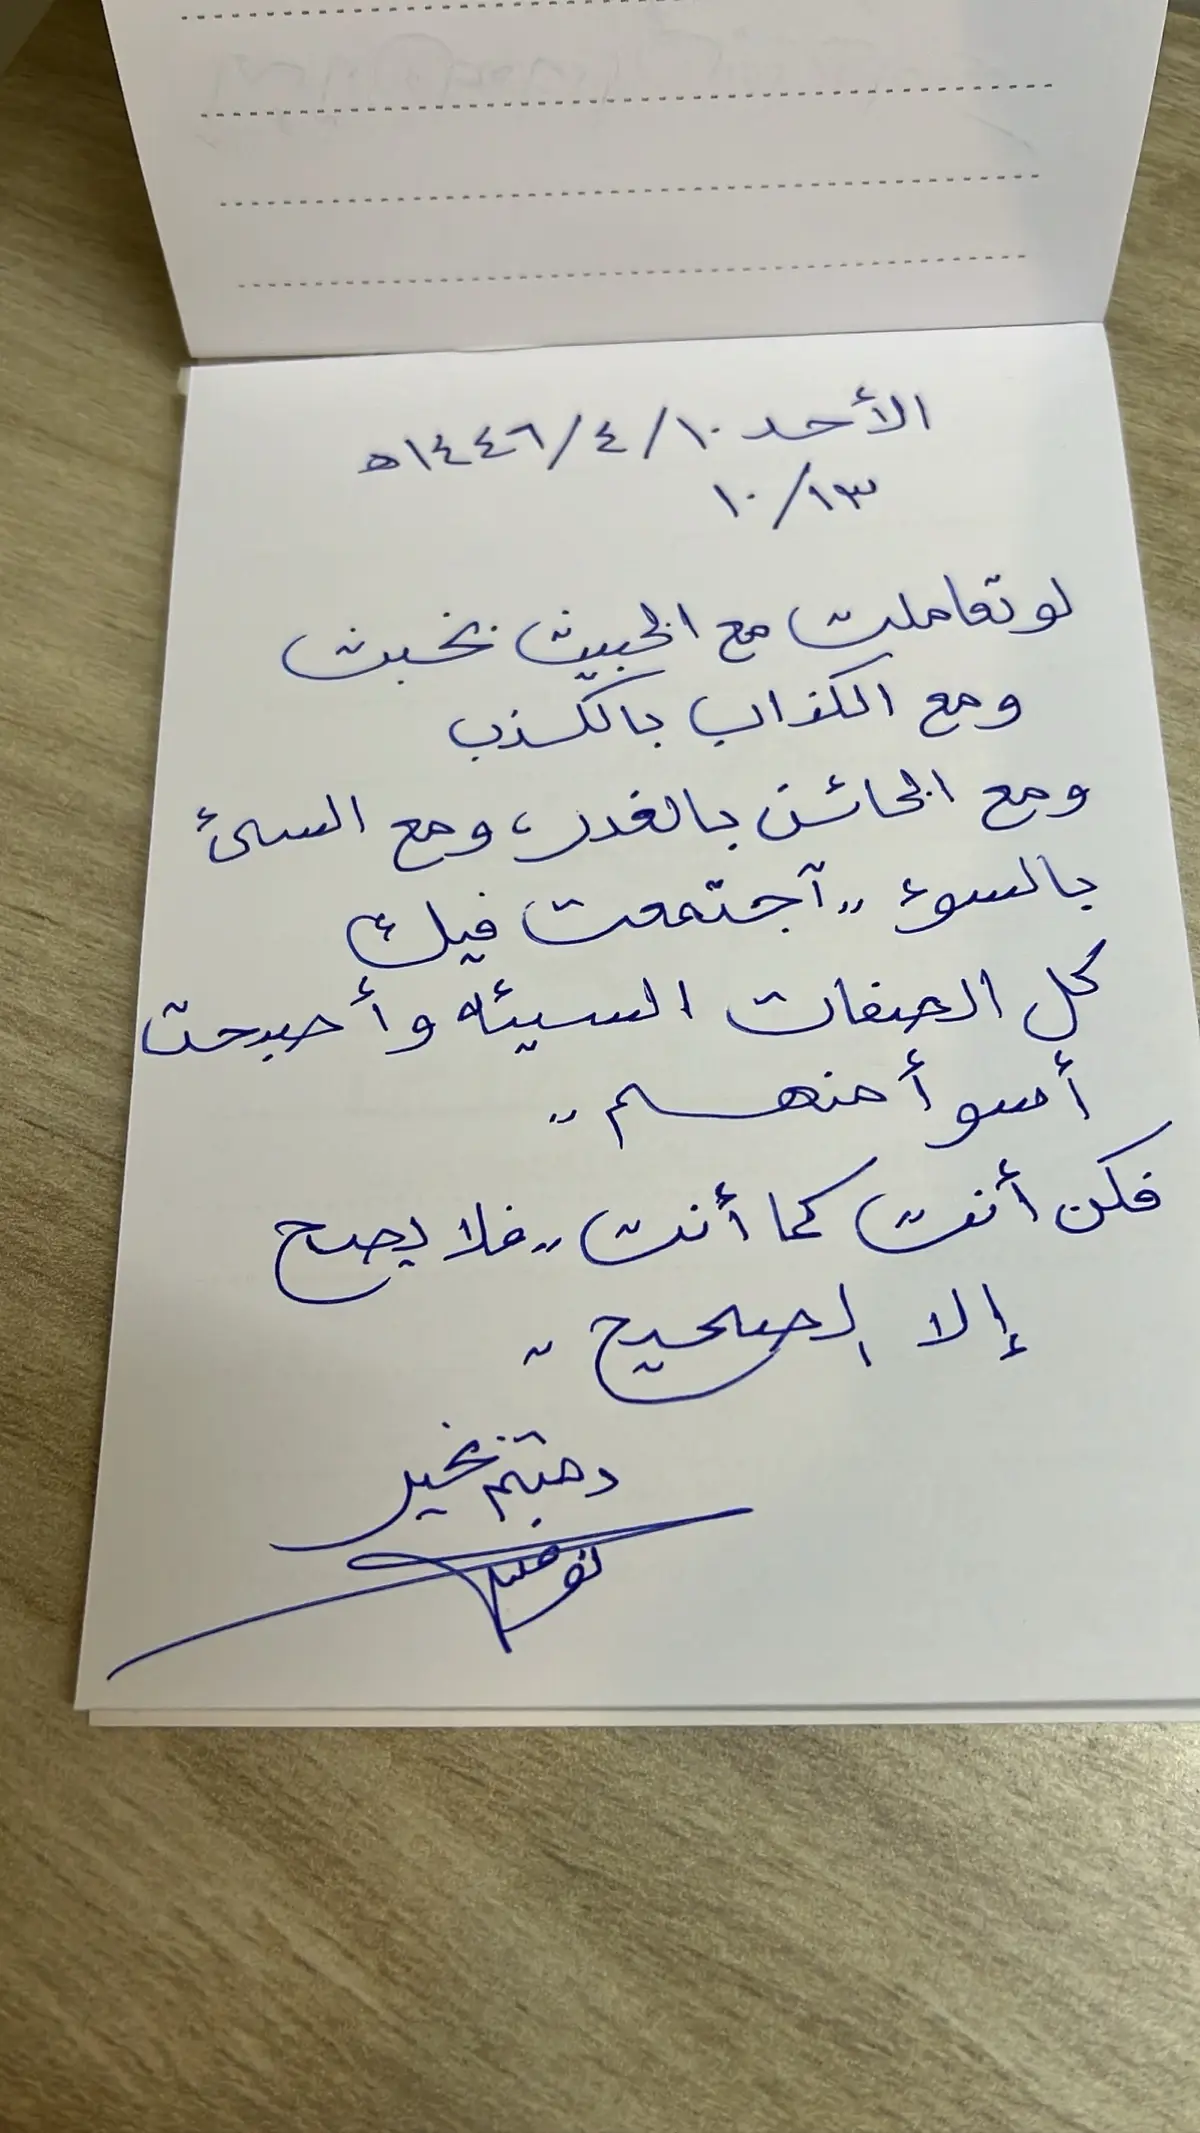 الأحد ١٠/٤/١٤٤٦ه
١٠/١٣
لو تعاملت مع الخبيث بخبث
ومع الكذاب بالكذب
ومع الخائن بالغدر، ومع السئ
بالسوء ,, آجتمعت فيك
كل الصفات السيئه وأصبحت
أسوأ منهم ,,
فكن أنت كما أنت ,, فلا يصح
إلا الصحيح ,,
دمتم بخير
توفيق